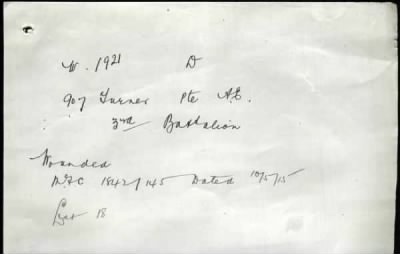 W. 1921 D
907 Turner Pte A.E.
3rd Battalion
Wounded
1842/145 Dated 10/5/15
List 18